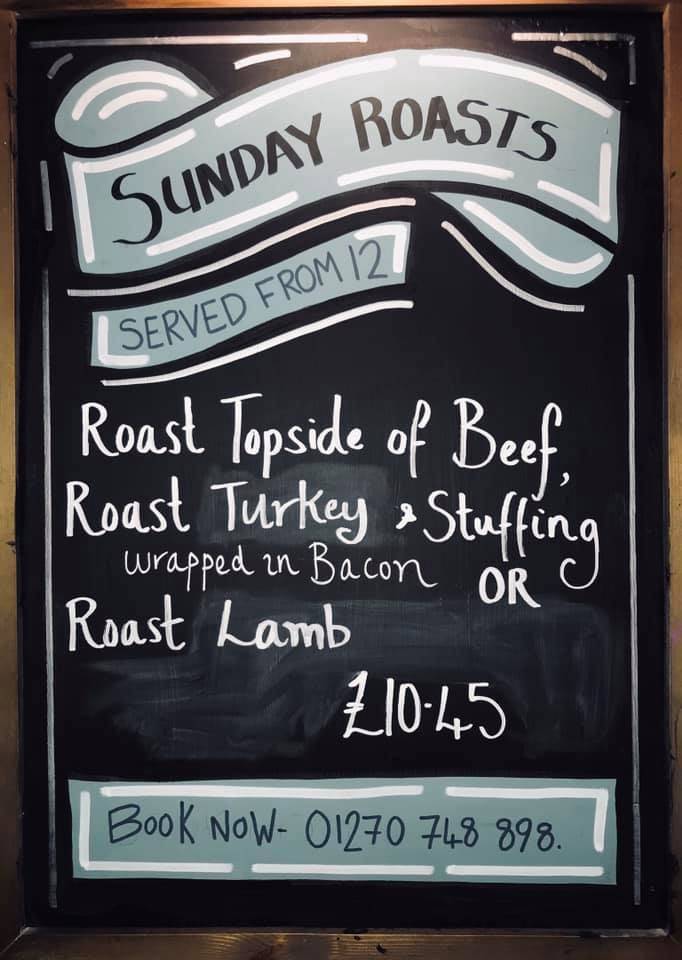 SUNDAY ROASTS
SERVED FROM 12
Roast Topside of Beef,
Roast Turkey & Stuffing
wrapped in Bacon OR
Roast Lamb
£10.45
BOOK NOW- 01270 748 898.